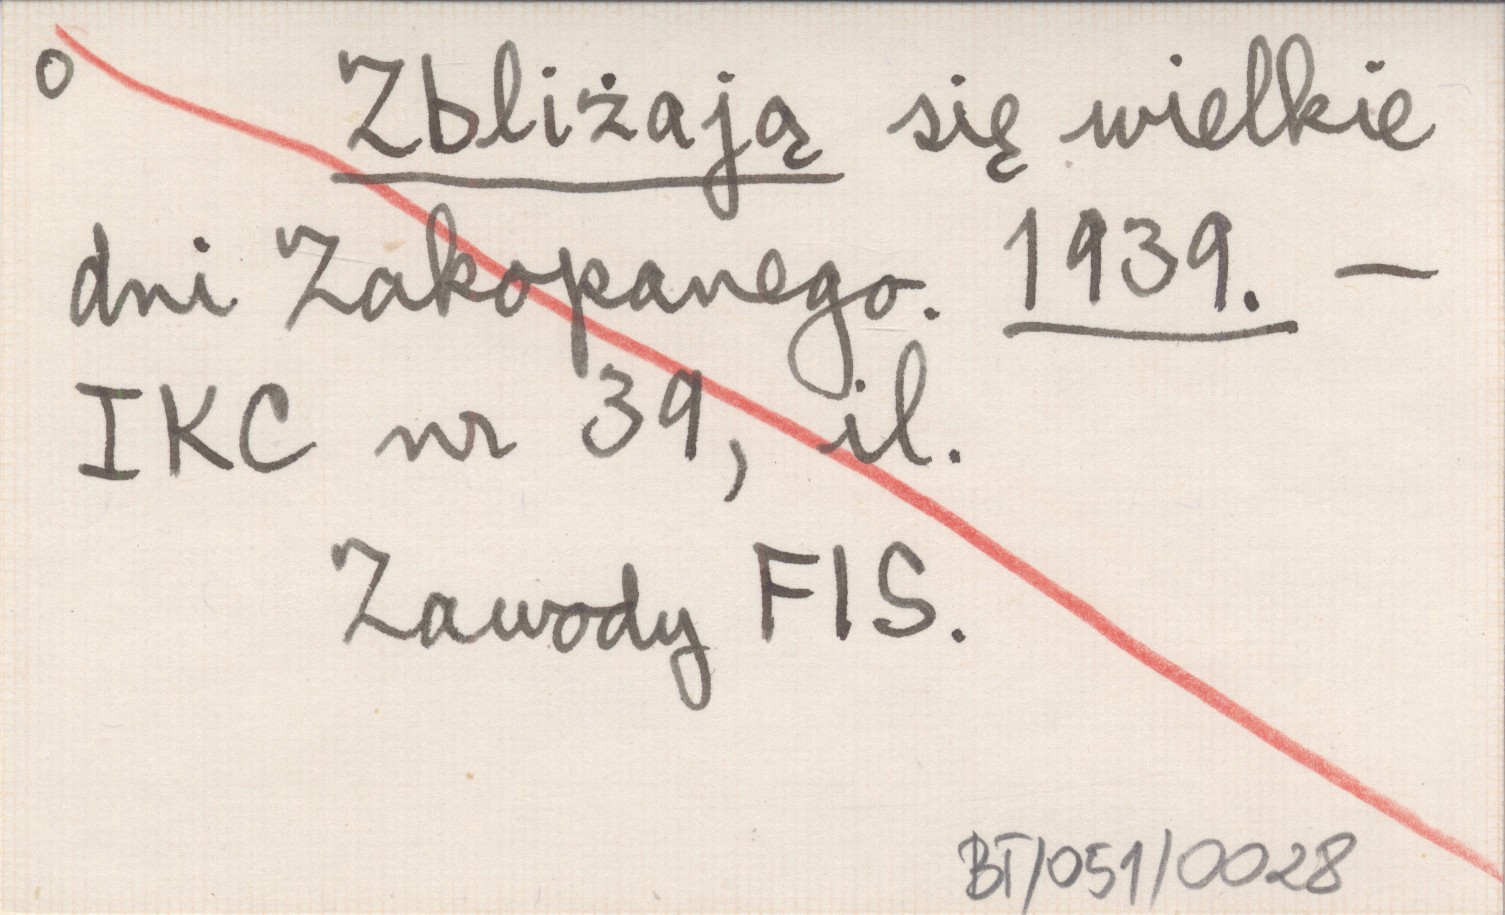 o Zbliżają się wielkie
dni Zakopanego. 1939. —
IKC nr 39, il.
Zawody FIS.
BT/051/0028